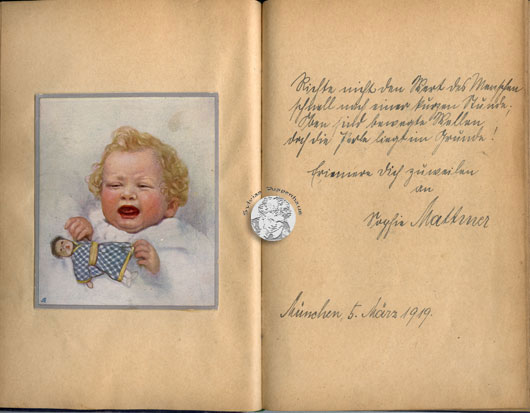 Richte nicht den Wert des Menschen
schnell nach einer kurzen Stunde,
Oben sind bewegte Wellen,
doch die Perle liegt im Grunde!
Erinnere Dich zuweilen
an
Sophie Mattner
München, 5. März 1919.